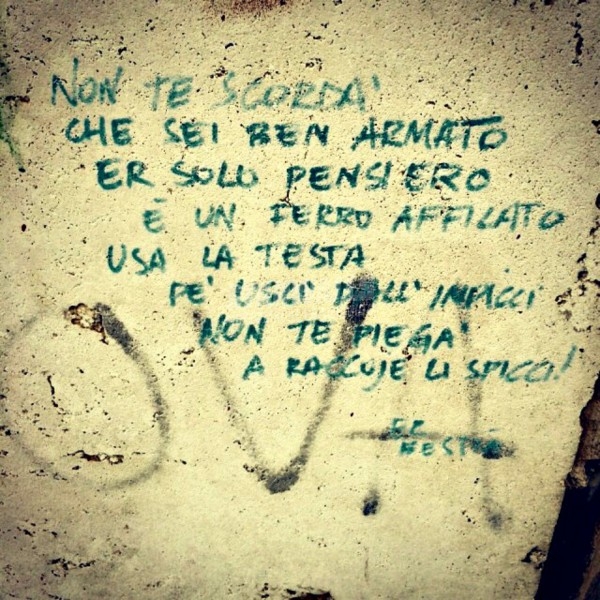 NON TE SCORDA'
CHE SEI BEN ARMATO
ER SOLO PENSIERO
È UN FERRO AFFILATO
USA LA TESTA
PE' USCI' DALL'IMPICCI
NON TE PIEGA'
A RACCOJE LI SPICCI!
ER
BESTIA
OVA